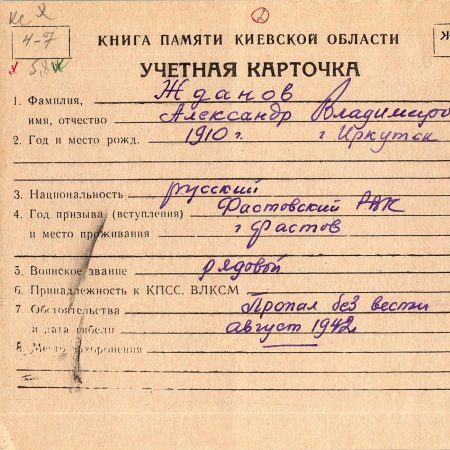 2
4-7
5,8
КНИГА ПАМЯТИ КИЕВСКОЙ ОБЛАСТИ
УЧЕТНАЯ КАРТОЧКА
1. Фамилия, Жданов
имя, отчество Александр Владимиро
2. Год и место рожд. 1910 г. г Иркутск
3. Национальность русский
4. Год призыва (вступления) Фастовский РВК
и место проживания г Фастов
5. Воинское звание рядовой
6. Принадлежность к КПСС. ВЛКСМ
7. Обстоятельства Пропал без вести
и дата гибели август 1942г
8. Место захоронения